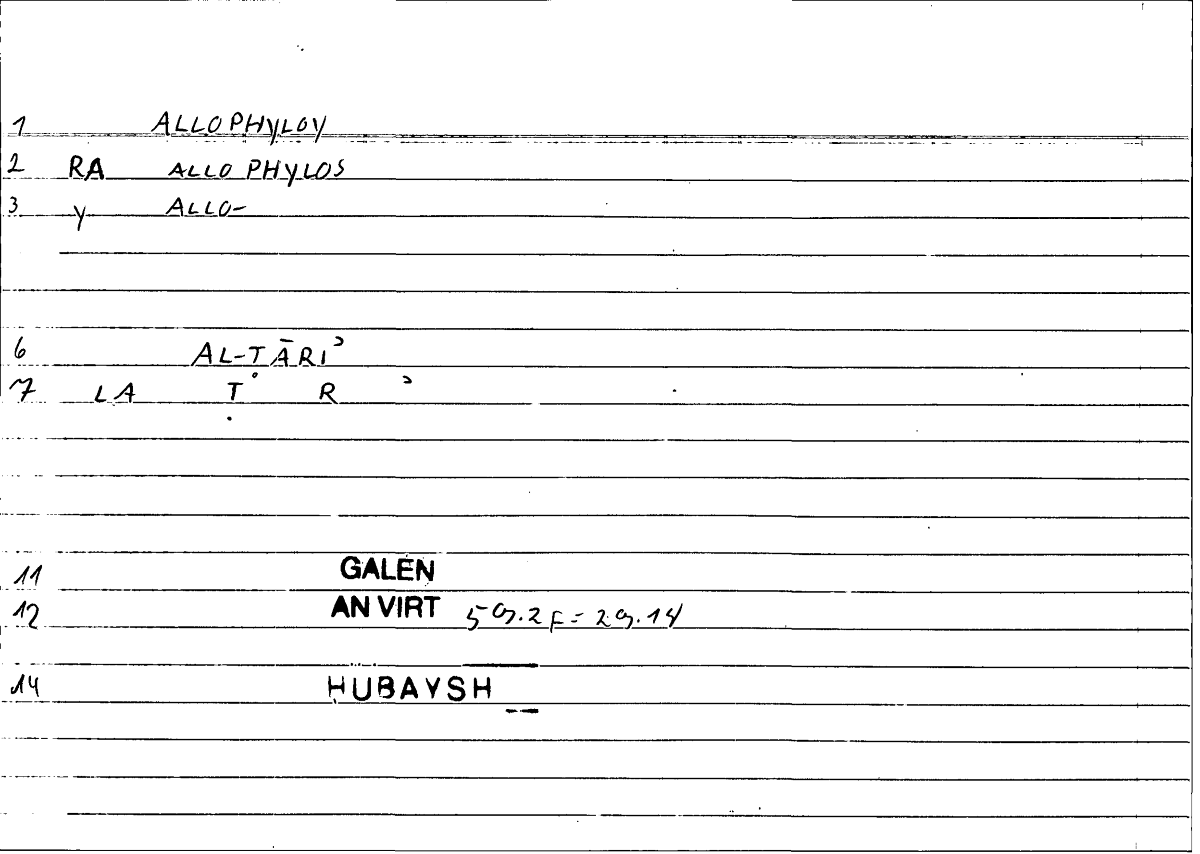 1 ALLOPHYLOY
2 RA ALLO PHYLOS
3 Y ALLO-
6 AL-TĀRIʾ
7 LA Ṭ R ʾ
11 GALEN
12 AN VIRT 59.2 F = 29.14
14 ḤUBAYSH